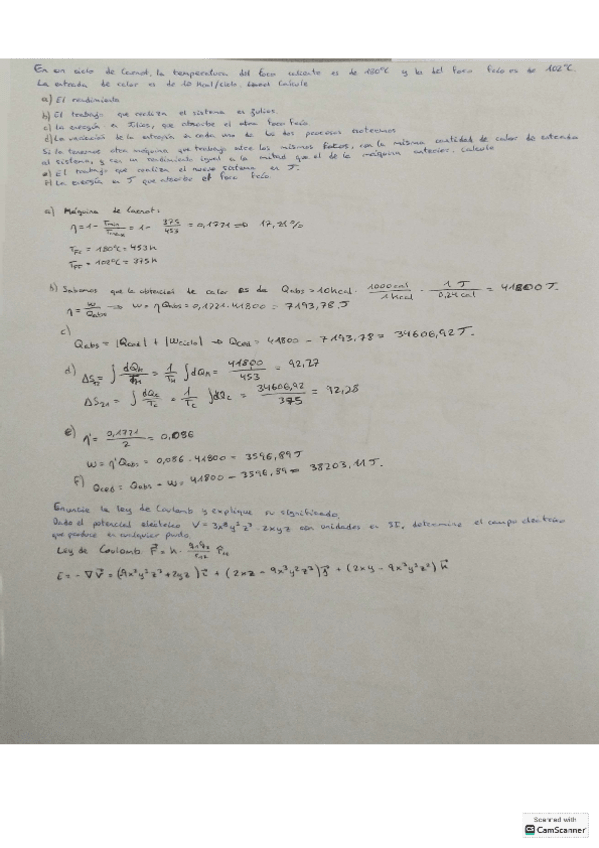 En un ciclo de Carnot, la temperatura del foco caliente es de 180°C y la del foco frío es de 102°C.
La entrada de calor es de 10 kcal/ciclo. Calcule
a) El rendimiento
b) El trabajo que realiza el sistema en Julios.
c) La energía en Julios, que absorbe el foco frío
d) La variación de la entropía en cada uno de los dos procesos isotermos
Si tenemos otra máquina que trabaja entre los mismos focos, con la misma cantidad de calor de entrada
al sistema, y con un rendimiento igual a la mitad que el de la máquina anterior. Calcule
e) El trabajo que realiza el nuevo sistema en J.
f) La energía en J que absorbe el foco frío.
a) Máquina de Carnot:
η = 1 - Tmin/Tmax = 1 - 375/453 = 0,1721 => 17,21%
TFC = 180°C = 453 K
TFF = 102°C = 375K
b) Sabemos que la obtencion de calor es de Qabs = 10kcal · 1000cal/1kcal · 1J/0,24cal = 41800 J.
η = W/Qabs → W = ηQabs = 0,1721·41800 = 7193,78 J
c)
Qabs = |Qced| + |Wciclo| → Qced = 41800 - 7193,78 = 34606,92 J.
d) ΔS12 = ∫ dQH/TH = 1/TH ∫dQH = 41800/453 = 92,27
ΔS21 = ∫ dQc/Tc = 1/Tc ∫dQc = 34606,92/375 = 92,28
e) η' = 0,1721/2 = 0,086
W = η'Qabs = 0,086·41800 = 3596,89 J
f) Qced = Qabs - W = 41800 - 3596,89 = 38203,11 J.
Enuncie la ley de Coulomb y explique su significado.
Dado el potencial eléctrico V = 3x³y²z³ - 2xyz con unidades en SI, determine el campo eléctrico
que produce en cualquier punto.
Ley de Coulomb F = k ·
E = - ∇V = (-9x²y²z³ + 2yz) i + (2xz - 9x³y²z²) j + (2xy - 9x³y²z²) k
Scanned with
CamScanner